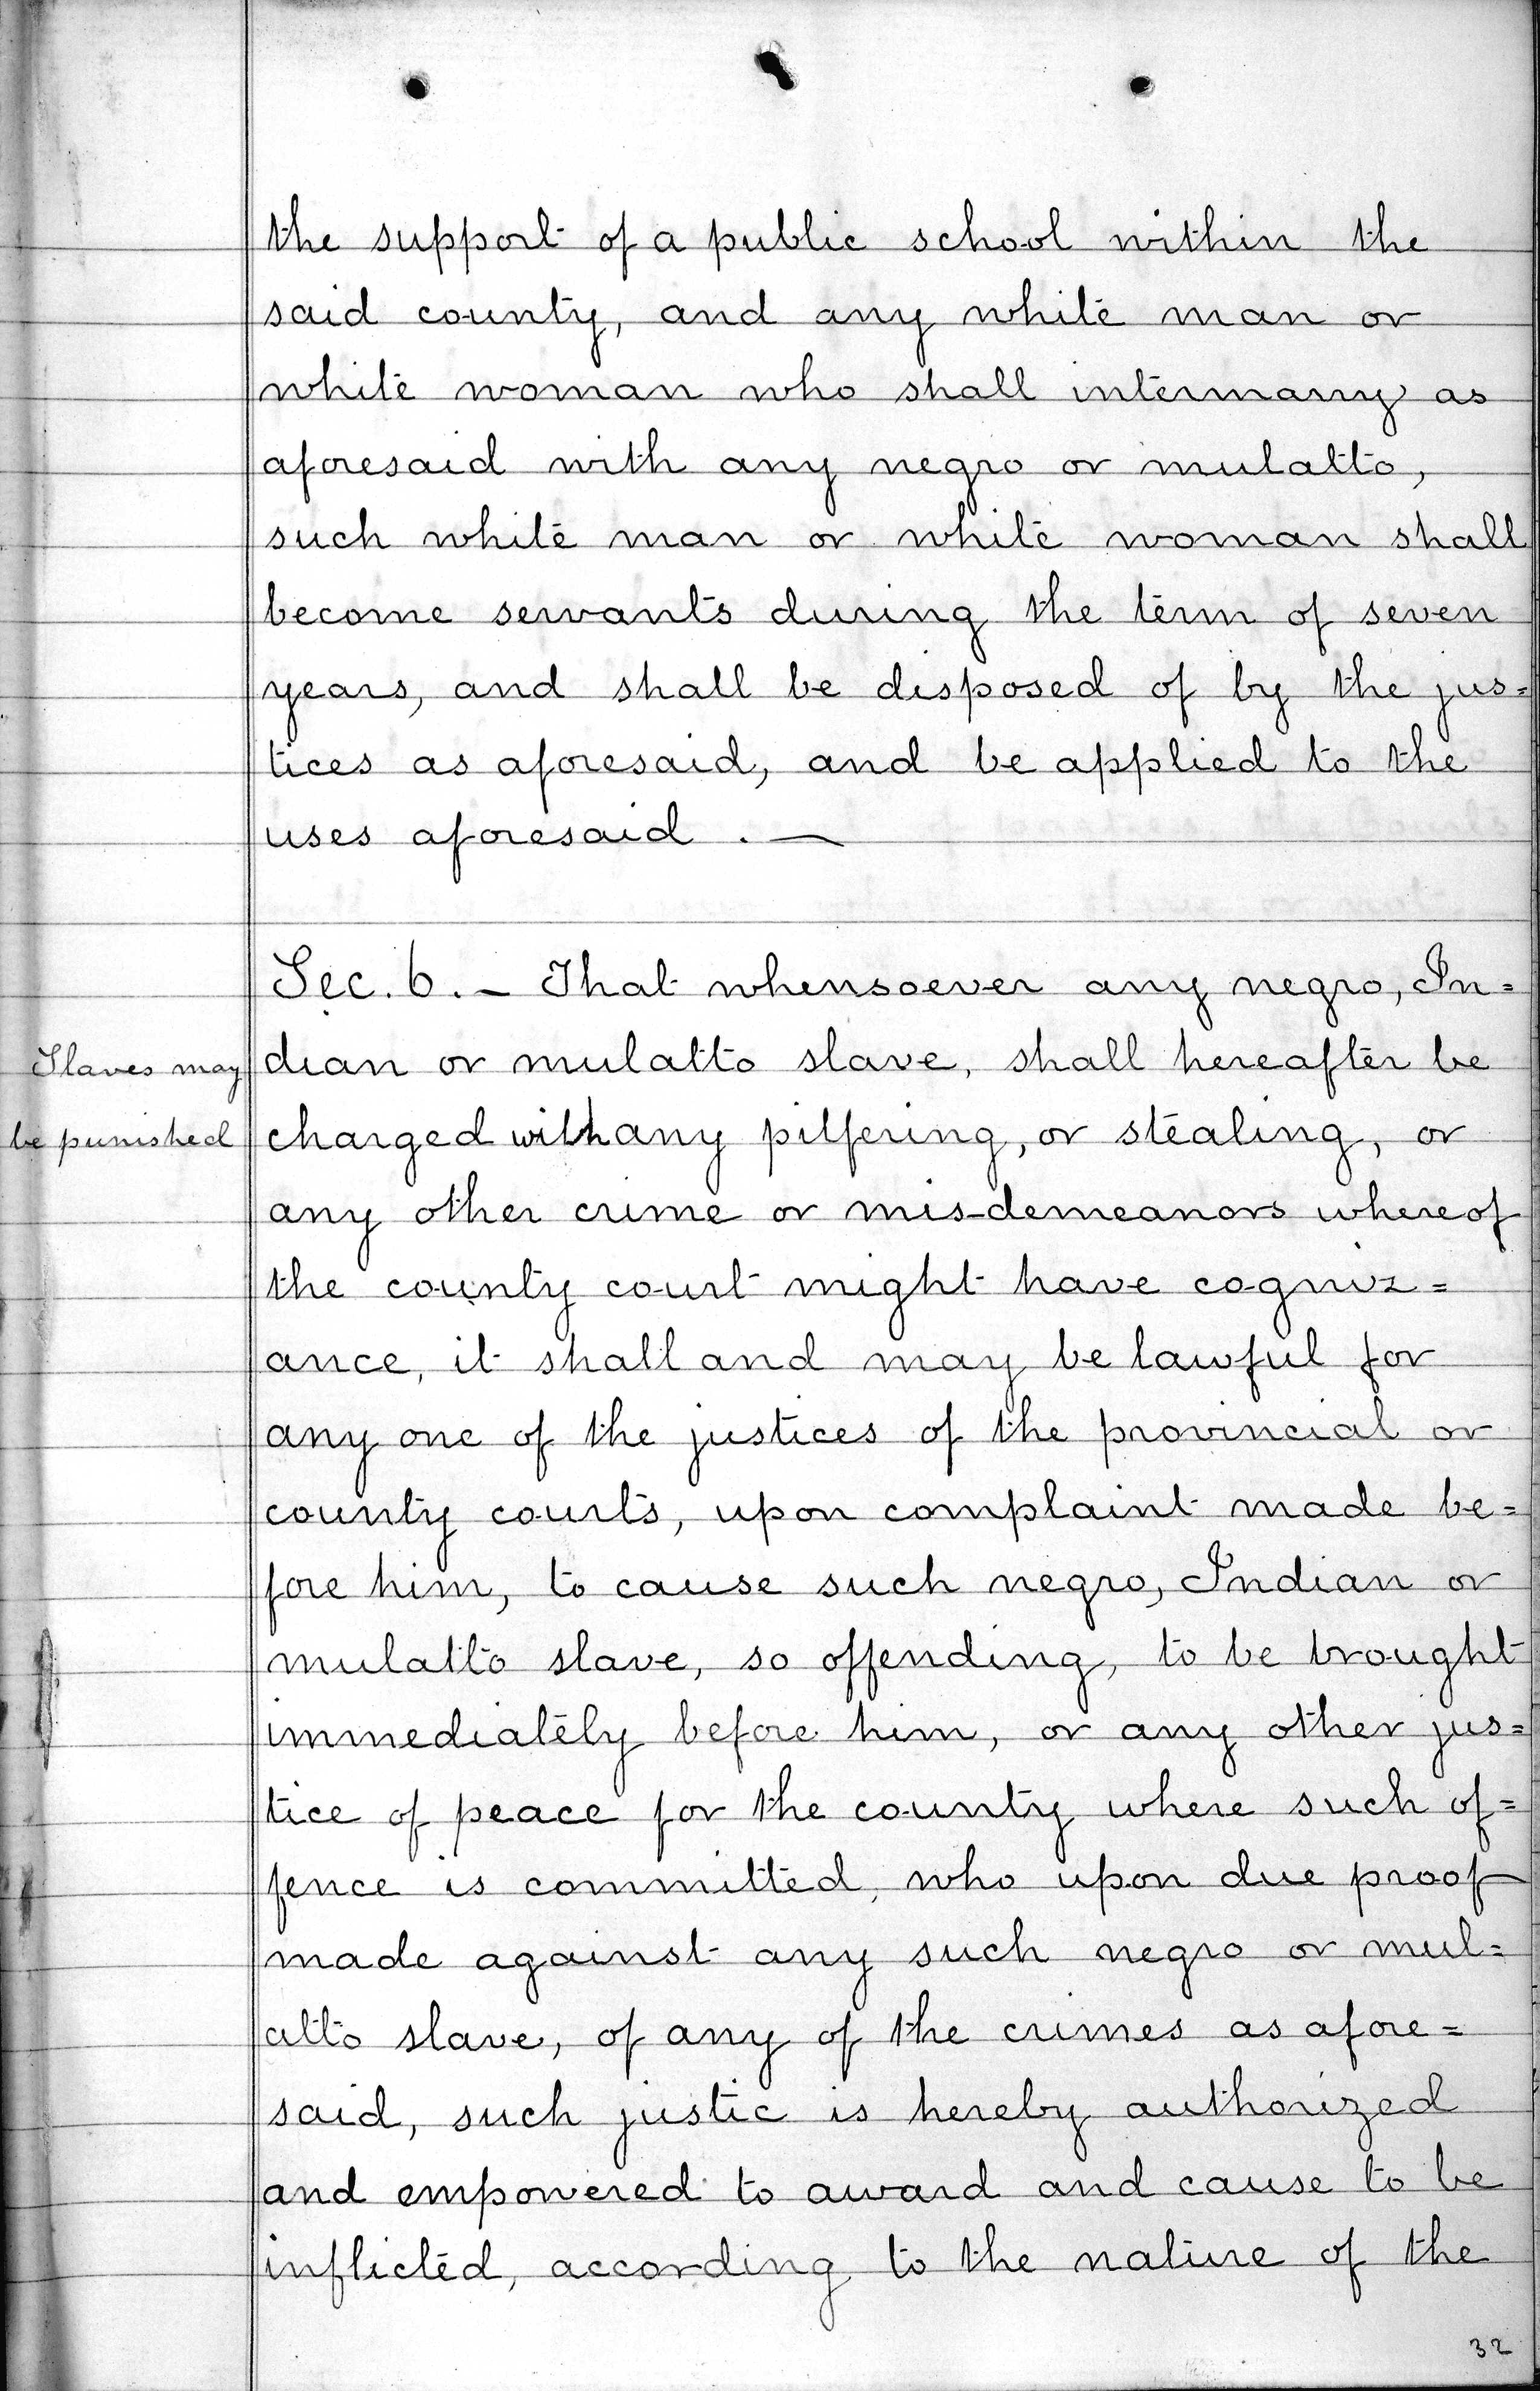 the support of a public school within the
said county, and any white man or
white woman who shall intermarry as
aforesaid with any negro or mulatto,
such white man or white woman shall
become servants during the term of seven
years, and shall be disposed of by the jus=
tices as aforesaid, and be applied to the
uses aforesaid . —
Sec. 6. – That whensoever any negro, In=
Slaves may
be punished
dian or mulatto slave, shall hereafter be
charged with any pilfering, or stealing, or
any other crime or mis-demeanors whereof
the county court might have cogniz=
ance, it shall and may be lawful for
any one of the justices of the provincial or
county courts, upon complaint made be=
fore him, to cause such negro, Indian or
mulatto slave, so offending, to be brought
immediately before him, or any other jus=
tice of peace for the county where such of=
fence is committed, who upon due proof
made against any such negro or mul=
atto slave, of any of the crimes as afore=
said, such justic is hereby authorized
and empowered to award and cause to be
inflicted, according to the nature of the
32